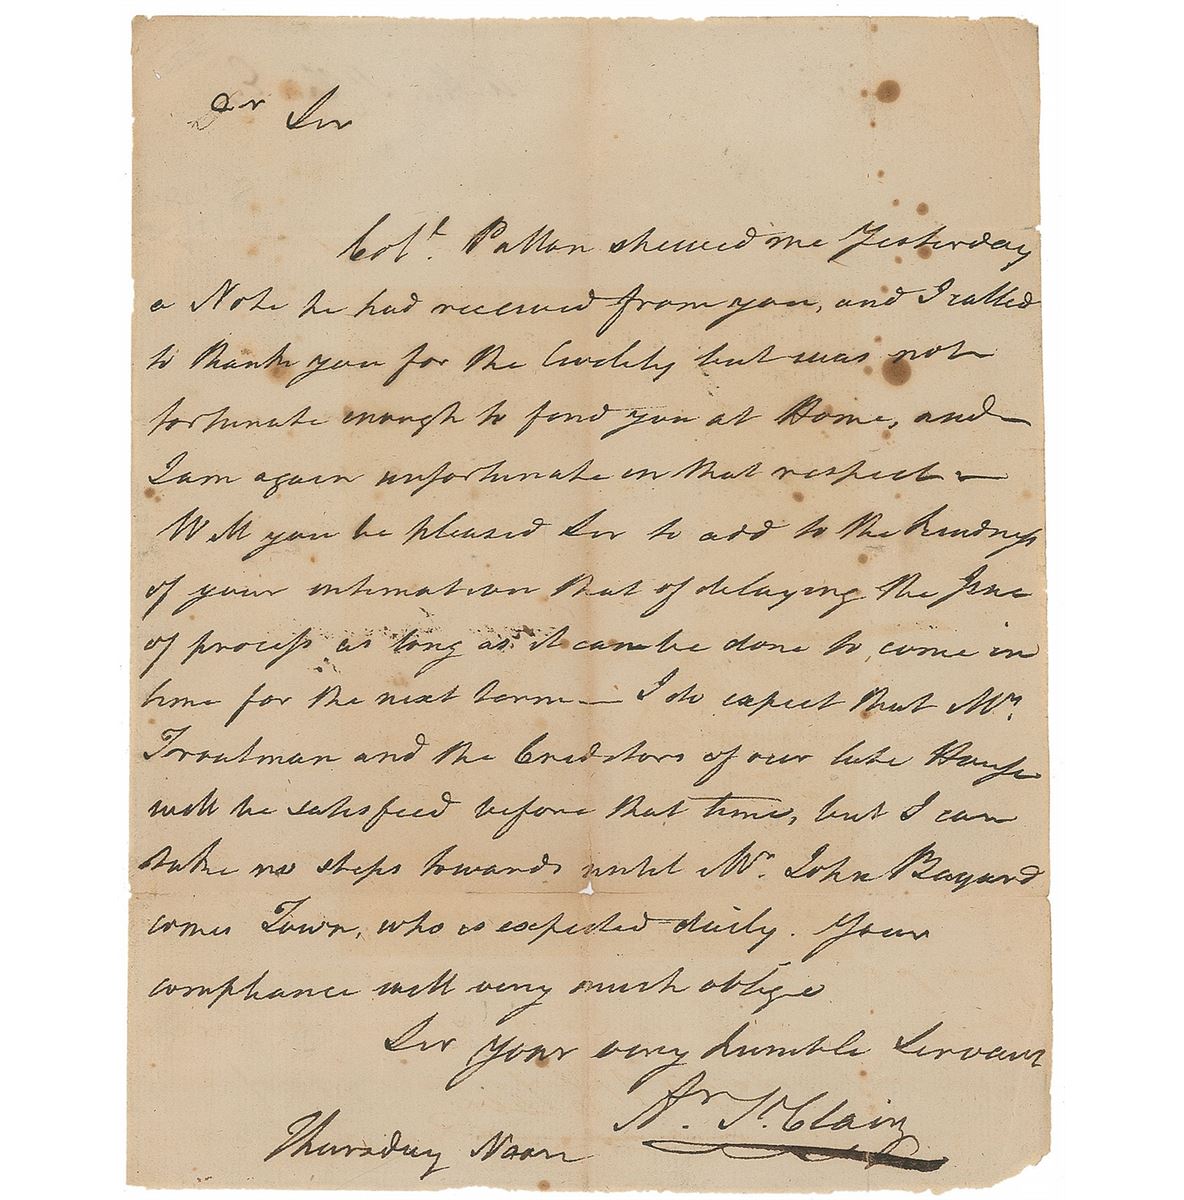 Dr Sir
Colo. Patton shewed me Yesterday
a Note he had received from you, and I called
to thank you for the Civility but was not
fortunate enough to find you at Home, and
I am again unfortunate in that respect —
Will you be pleased Sir to add to the kindness
of your intimation that of delaying the Issue
of process as long as it can be done to come in
time for the next term — I do expect that Mr.
Troutman and the Creditors of our late House
will be satisfied before that time, but I can
take no steps towards until Mr. John Bayard
comes Town, who is expected daily. Your
compliance will very much oblige
Sir your very humble Servant
Ar. St. Clair
Thursday Noon